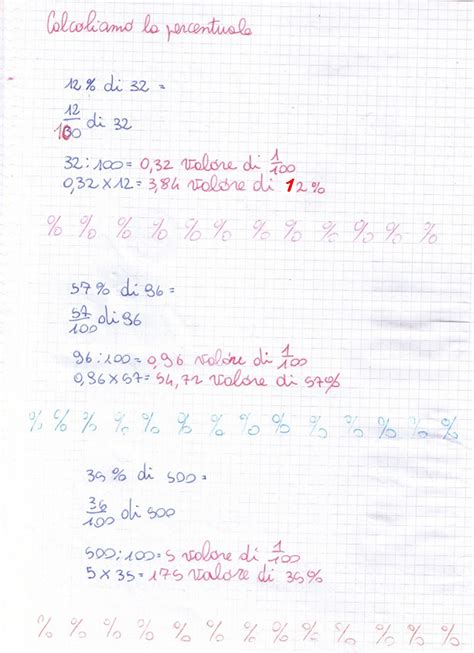 Calcoliamo la percentuale
12% di 32 =
12
100 di 32
32 : 100 = 0,32 valore di 1/100
0,32 x 12 = 3,84 valore di 12%
% % % % % % % % % % % %
57% di 96 =
57
100 di 96
96 : 100 = 0,96 valore di 1/100
0,96 x 57 = 54,72 valore di 57%
% % % % % % % % % % % % % %
35% di 500 =
35
100 di 500
500 : 100 = 5 valore di 1/100
5 x 35 = 175 valore di 35%
% % % % % % % % % % % % %